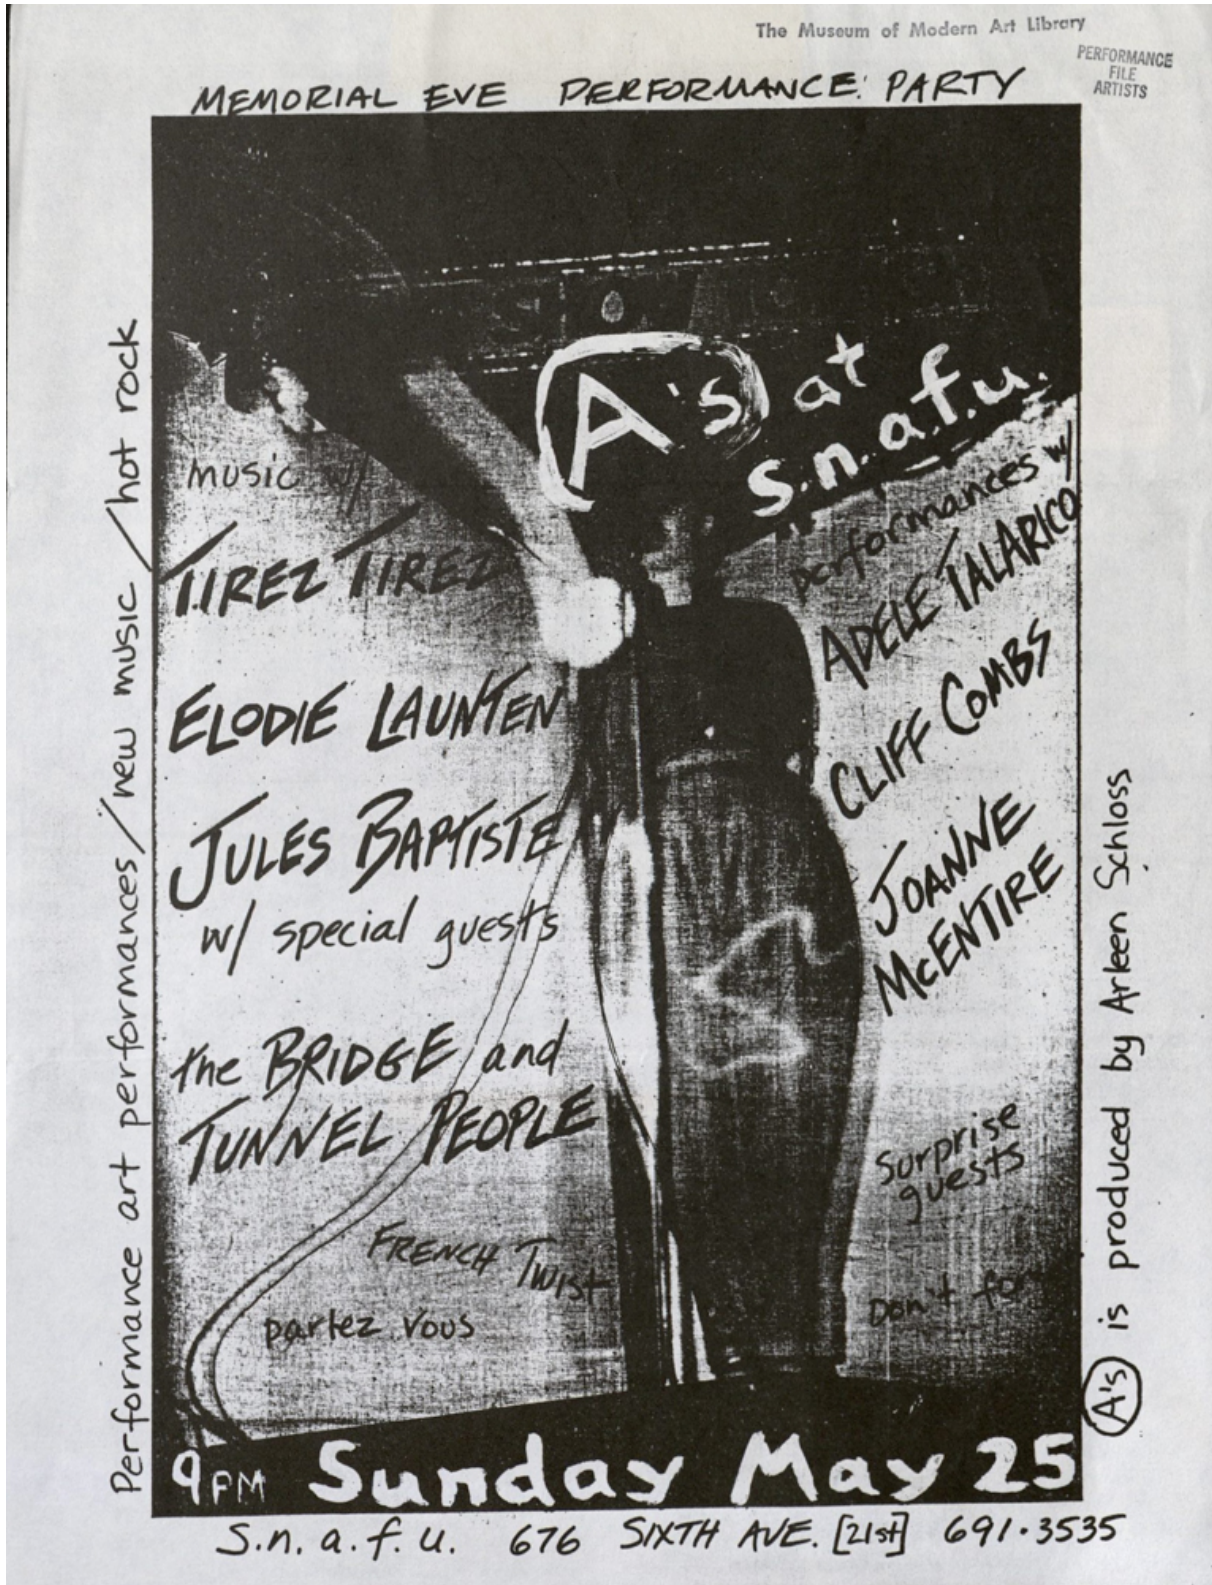 The Museum of Modern Art Library
PERFORMANCE
FILE
ARTISTS
MEMORIAL EVE PERFORMANCE PARTY
Performance art performances/new music/hot rock
A's at
s.n.a.f.u.
music w/
TIREZ TIREZ
ELODIE LAUNTEN
JULES BAPTISTE
w/ special guests
the BRIDGE and
TUNNEL PEOPLE
FRENCH TWIST
parlez vous
performances w/
ADELE TALARICO
CLIFF COMBS
JOANNE
McENTIRE
Surprise
guests
Don't for
A's is produced by Arleen Schloss
9PM Sunday May 25
S.n.a.f.u. 676 SIXTH AVE. [21st] 691·3535